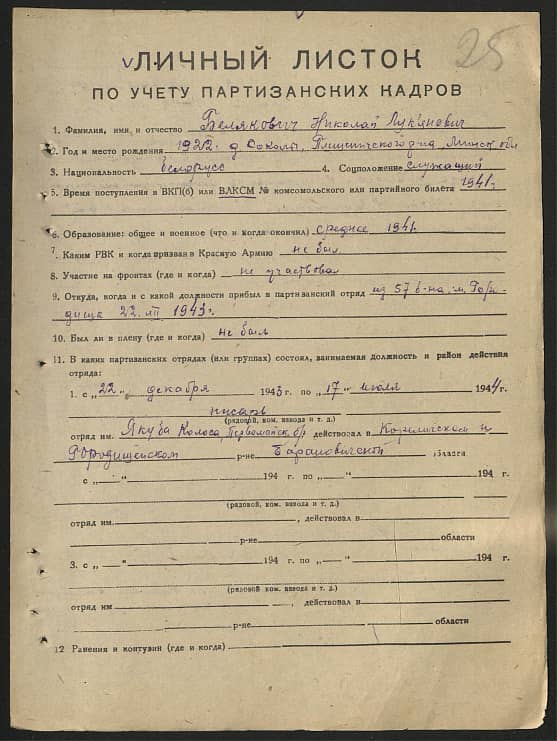 25
ЛИЧНЫЙ ЛИСТОК
ПО УЧЕТУ ПАРТИЗАНСКИХ КАДРОВ
1. Фамилия, имя и отчество Белякович Николай Лукьянович
2. Год и место рождения 1922г. д. Соколы, р-на, Минск. обл
3. Национальность белорусс 4. Соцположение служащий
5. Время поступления в ВКП(б) или ВЛКСМ № комсомольского или партийного билета 1941г.
6. Образование: общее и военное (что и когда окончил) среднее 1941г.
7. Каким РВК и когда призван в Красную Армию не был
8. Участие на фронтах (где и когда) не участвовал
9. Откуда, когда и с какой должности прибыл в партизанский отряд из 57 б-на, м. Горо-
дище 22.XII 1943г.
10. Был ли в плену (где и когда) не был
11. В каких партизанских отрядах (или группах) состоял, занимаемая должность и район действия
отряда:
1. с „22„ декабря 1943 г. по „17„ июля 1944 г.
писарь
(рядовой, ком. взвода и т. д.)
отряд им. Якуба Коласа, Первомайск. бр действовал в Кореличском и
Городищенском р-не Барановичской области
с „—„ 194 г. по „—„ 194 г.
(рядовой, ком. взвода и т. д.)
отряд им. , действовал в
р-не области
3. с „—„ 194 г. по „—„ 194 г.
(рядовой, ком. взвода и т. д.)
отряд им , действовал в
р-не области
12 Ранения и контузии (где и когда)